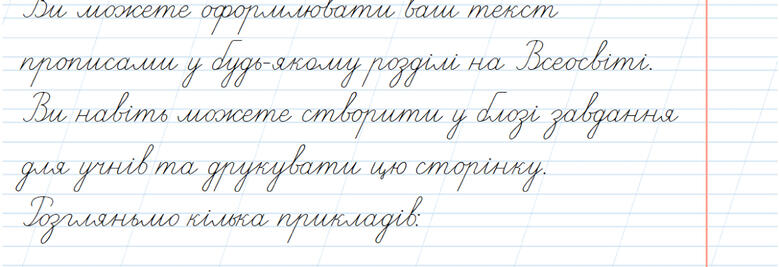 Ви можете оформлювати ваш текст
прописами у будь-якому розділі на Всеосвіті.
Ви навіть можете створити у блозі завдання
для учнів та друкувати цю сторінку.
Розгляньмо кілька прикладів: